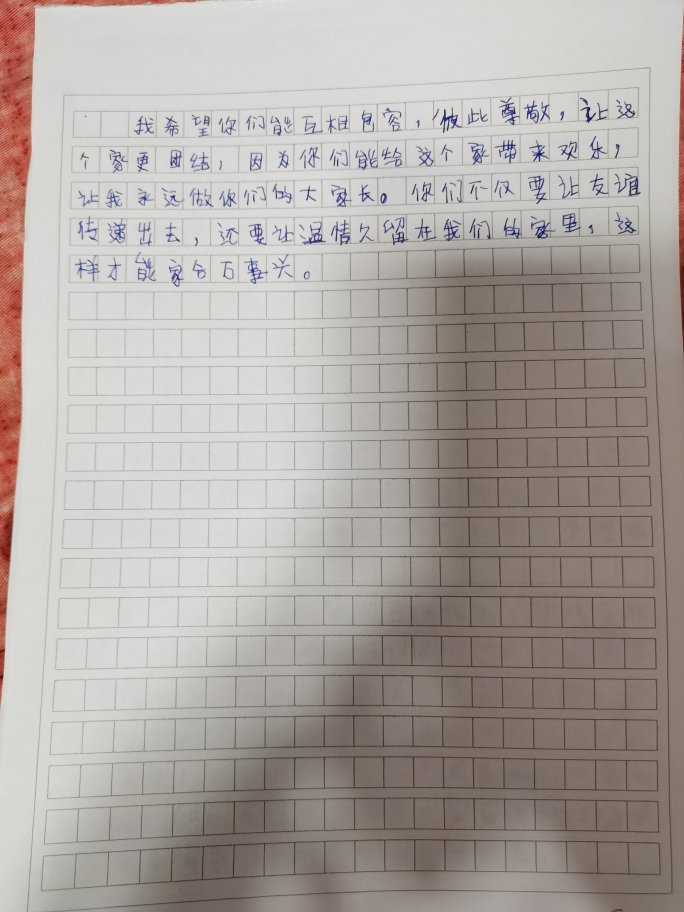 我希望你们能互相包容，彼此尊敬，让这
个家更团结，因为你们能给这个家带来欢乐，
让我永远做你们的大家长。你们不仅要让友谊
传递出去，还要让温情久留在我们的家里，这
样才能家合万事兴。